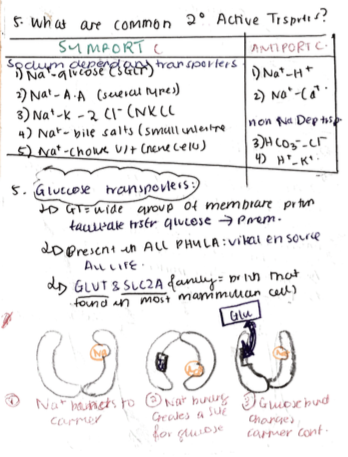 5. What are common 2° Active Trsprters?
SYMPORT C
ANTIPORT C.
Sodium dependant transporters
1) Na⁺-glucose (SGLT)
2) Na⁺-A.A (several types)
3) Na⁺-K-2 Cl⁻ (NKCC
4) Na⁺-bile salts (small intestine
5) Na⁺-choline
1) Na⁺-H⁺
2) Na⁺-Ca⁺
non Na Dep trsp
3) HCO3⁻-Cl⁻
4) H⁺-K⁺
5. Glucose transporters:
GT= wide group of membrane prtn
facilitate trstr glucose → P.mem.
Present in ALL PHYLA: vital en source
ALL LIFE.
GLUT & SLC2A family = prtn that
found in most mammalian cells
Glu
Na
Na
Na
① Na⁺ binds to
carrier
② Na⁺ binding
creates a site
for glucose
③ Glucose bind
changes
carrier conf.